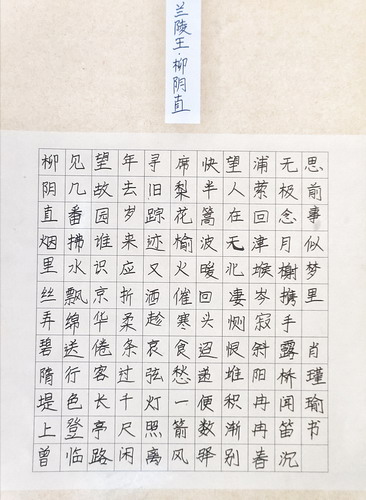 兰陵王·柳阴直
柳阴直烟里丝弄碧隋堤上曾
见几番拂水飘绵送行色登临
望故园谁识京华倦客长亭路
年去岁来应折柔条过千尺闲
寻旧踪迹又酒趁哀弦灯照离
席梨花榆火催寒食愁一箭风
快半篙波暖回头迢递便数驿
望人在天北凄恻恨堆积渐别
浦萦回津堠岑寂斜阳冉冉春
无极念月榭携手露桥闻笛沉
思前事似梦里 肖瑾瑜书